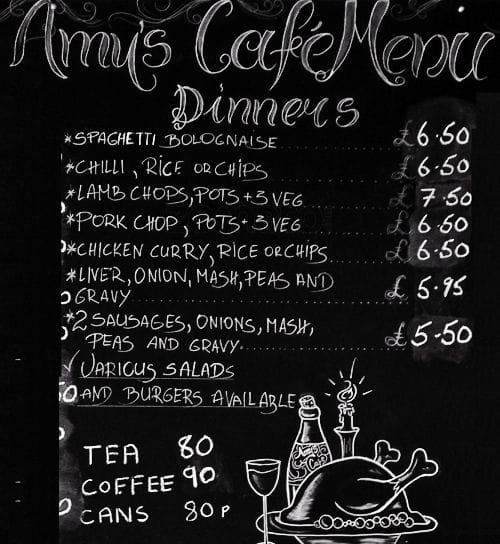 Amy's Café Menu
Dinners
*SPAGHETTI BOLOGNAISE £6.50
*CHILLI, RICE OR CHIPS £6.50
*LAMB CHOPS, POTS + 3 VEG £7.50
*PORK CHOP, POTS + 3 VEG £6.50
*CHICKEN CURRY, RICE OR CHIPS £6.50
*LIVER, ONION, MASH, PEAS AND
GRAVY £5.95
*2 SAUSAGES, ONIONS, MASH,
PEAS AND GRAVY. £5.50
VARIOUS SALADS
AND BURGERS AVAILABLE
Amy's
Café
TEA 80
COFFEE 90
CANS 80P